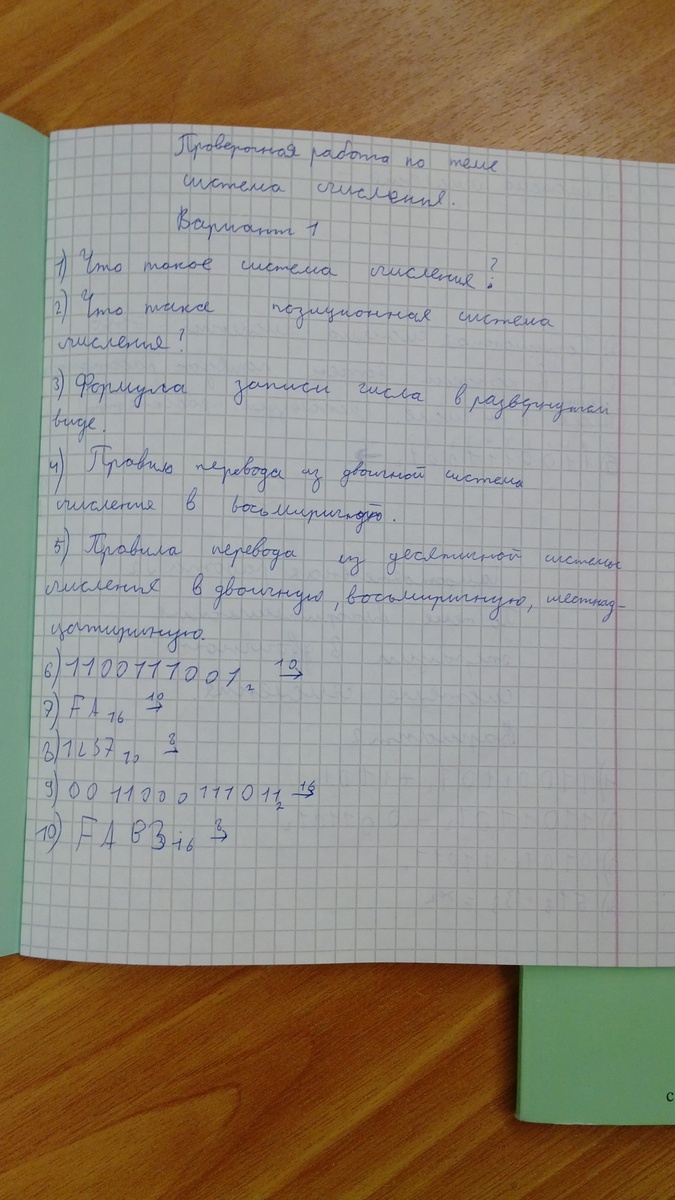 Проверочная работа по теме
система числения.
Вариант 1
1) Что такое система числения?
2) Что таке позиционная система
числения?
3) Формула записи числа в развернутом
виде.
4) Правило перевода из двоичной система
числения в восьмиричную.
5) Правила перевода из десятичной системы
числения в двоичную, восьмиричную, шестнад-
цатиричную.
6) 1100111001₂ →10
7) FA₁₆ →10
8) 1257₁₀ →8
9) 0011000111011₂ →16
10) FAB3₁₆ →8
с